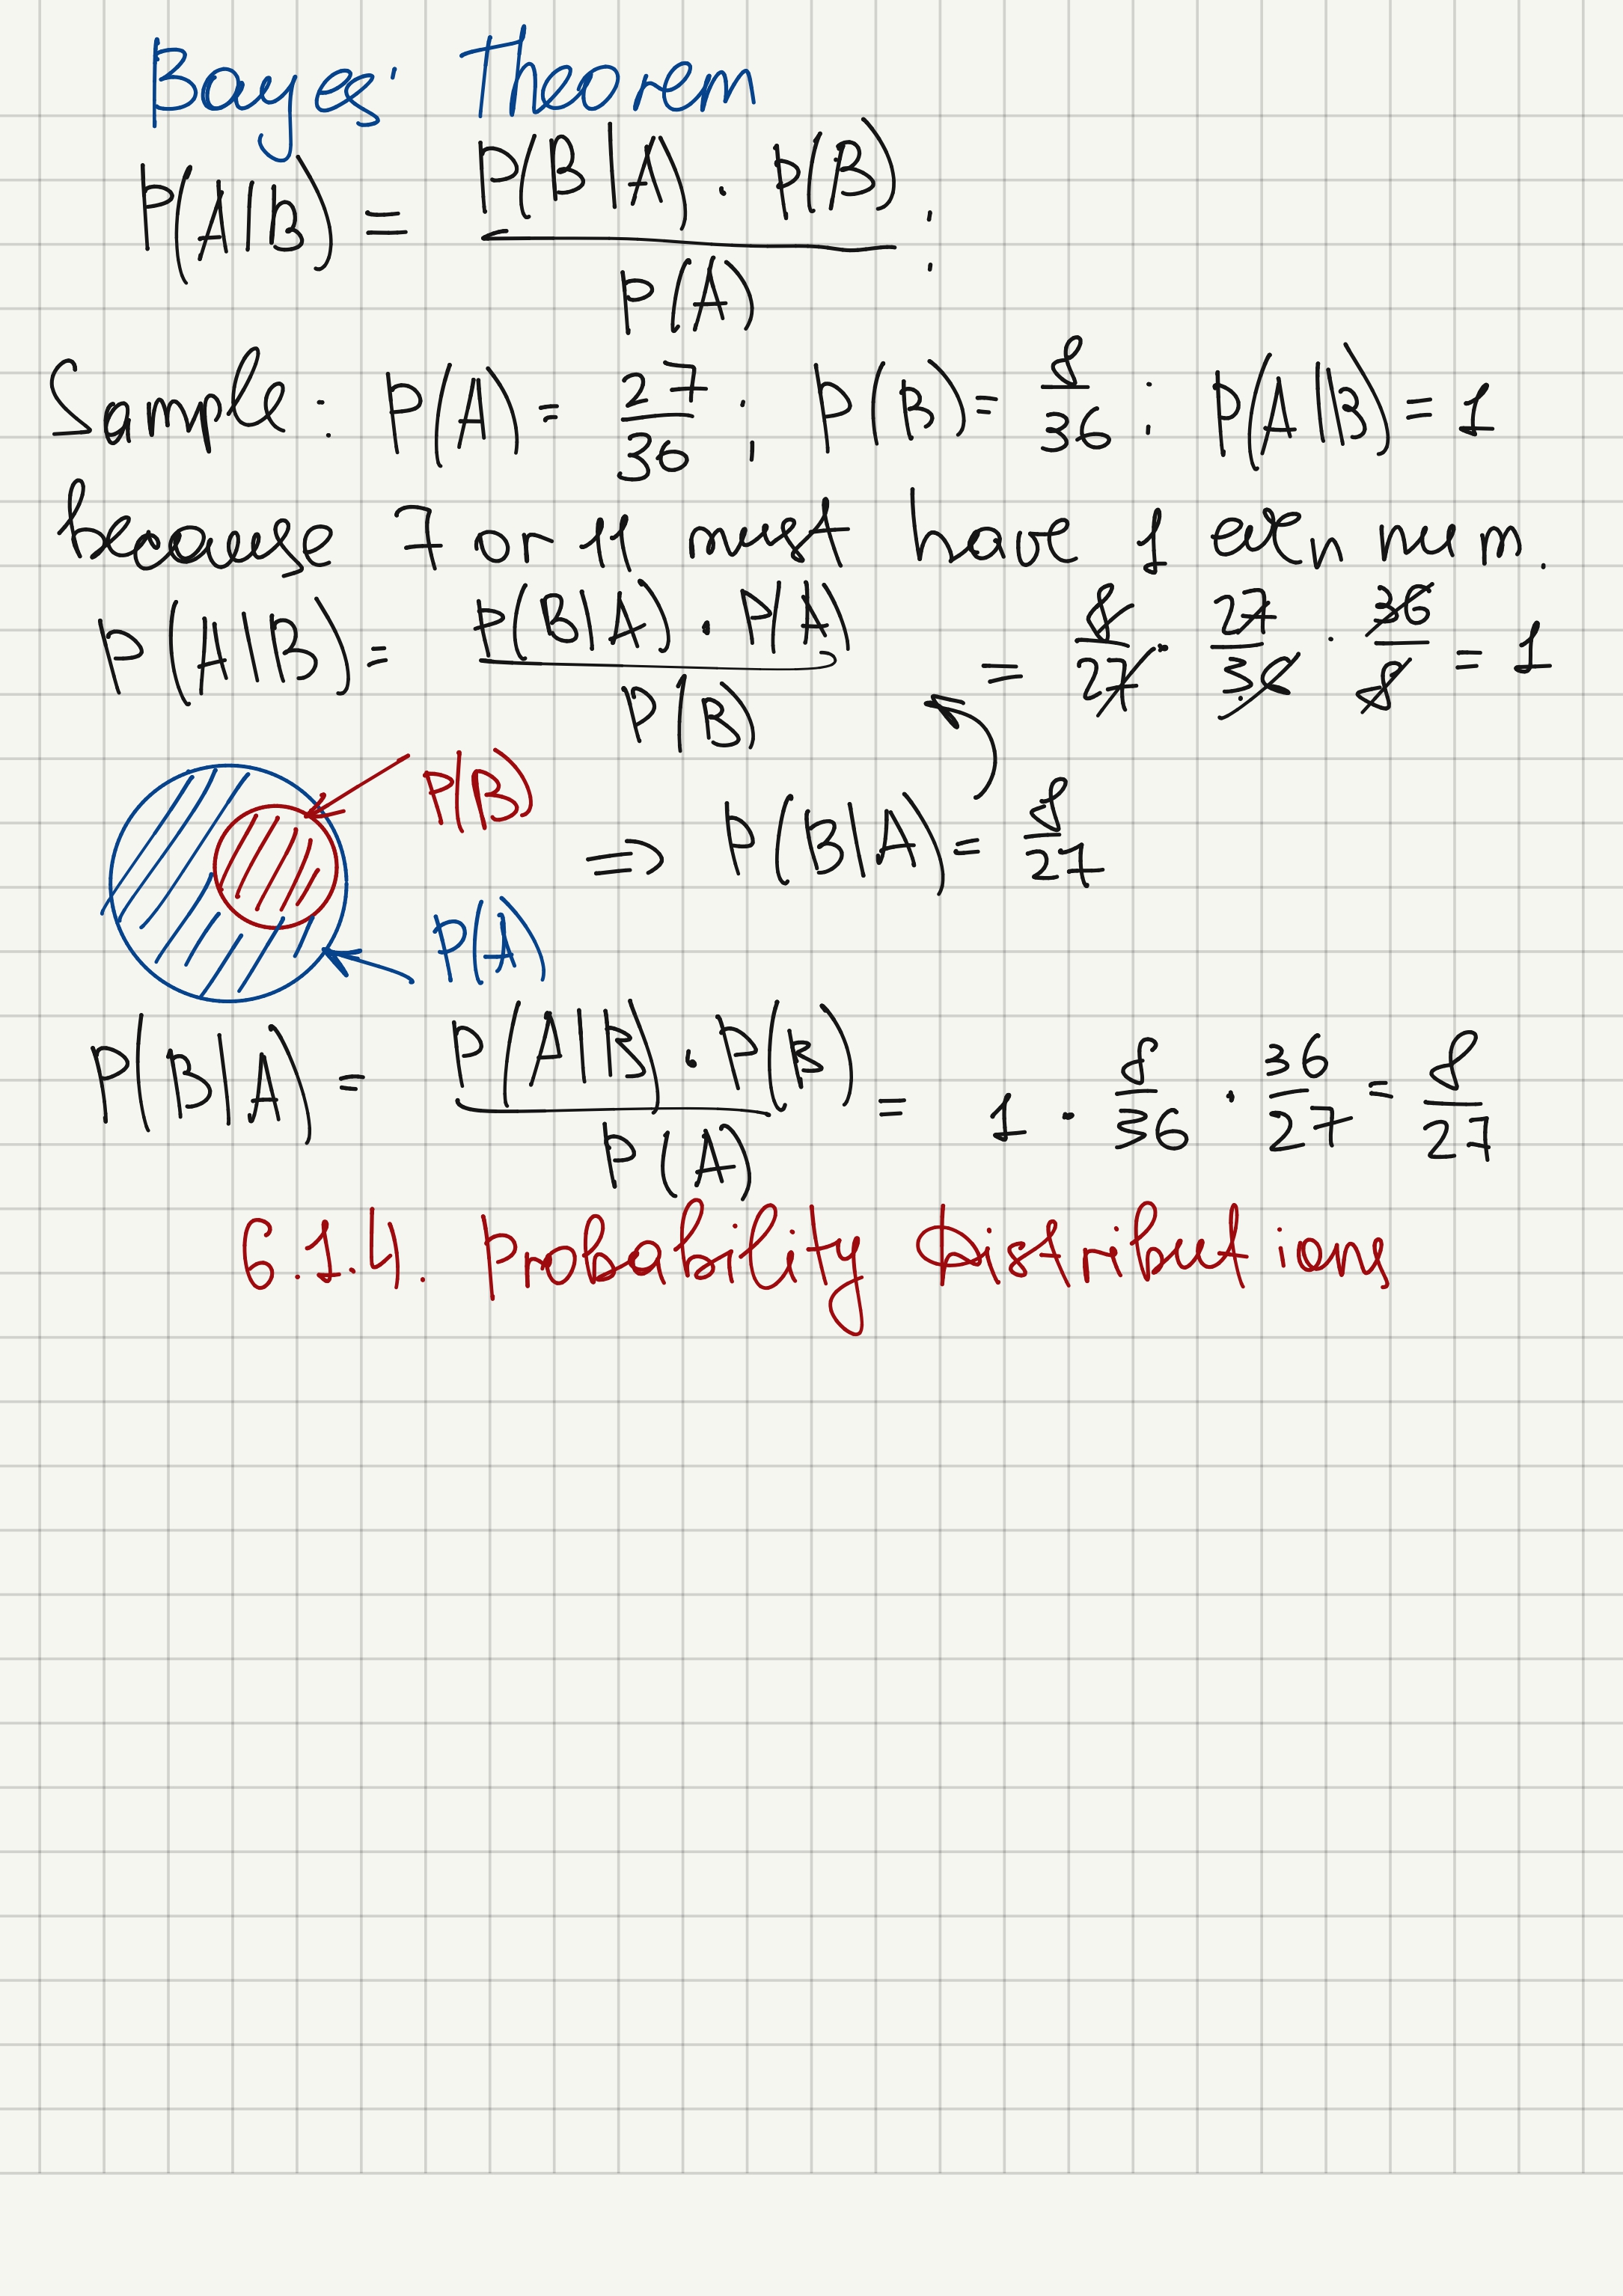 Bayes' Theorem
P(A|B) = P(B|A) · P(B) / P(A) :
Sample: P(A) = 27/36 ; P(B) = 8/36 : P(A|B) = 1
because 7 or 11 must have 1 even num.
P(A|B) = P(B|A) · P(A) / P(B) = 8/27 · 27/36 · 36/8 = 1
P(B)
=> P(B|A) = 8/27
P(A)
P(B|A) = P(A|B) · P(B) / P(A) = 1 · 8/36 · 36/27 = 8/27
6.1.4. Probability Distributions